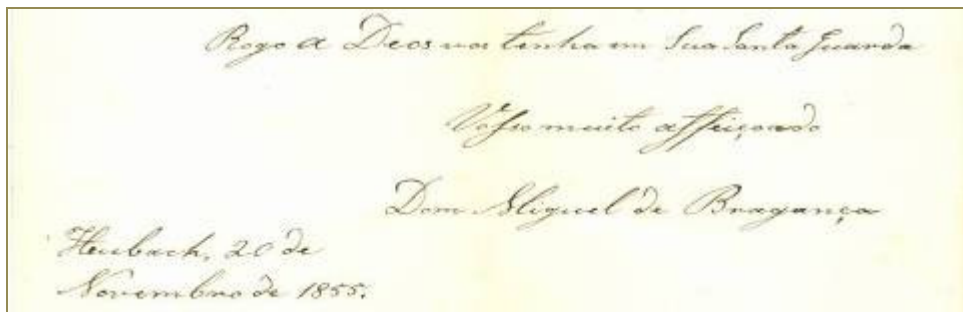 Rogo a Deos vos tenha em Sua Santa Guarda
Vosso muito affeiçoado
Dom Miguel de Bragança
Heubach, 20 de
Novembro de 1855.